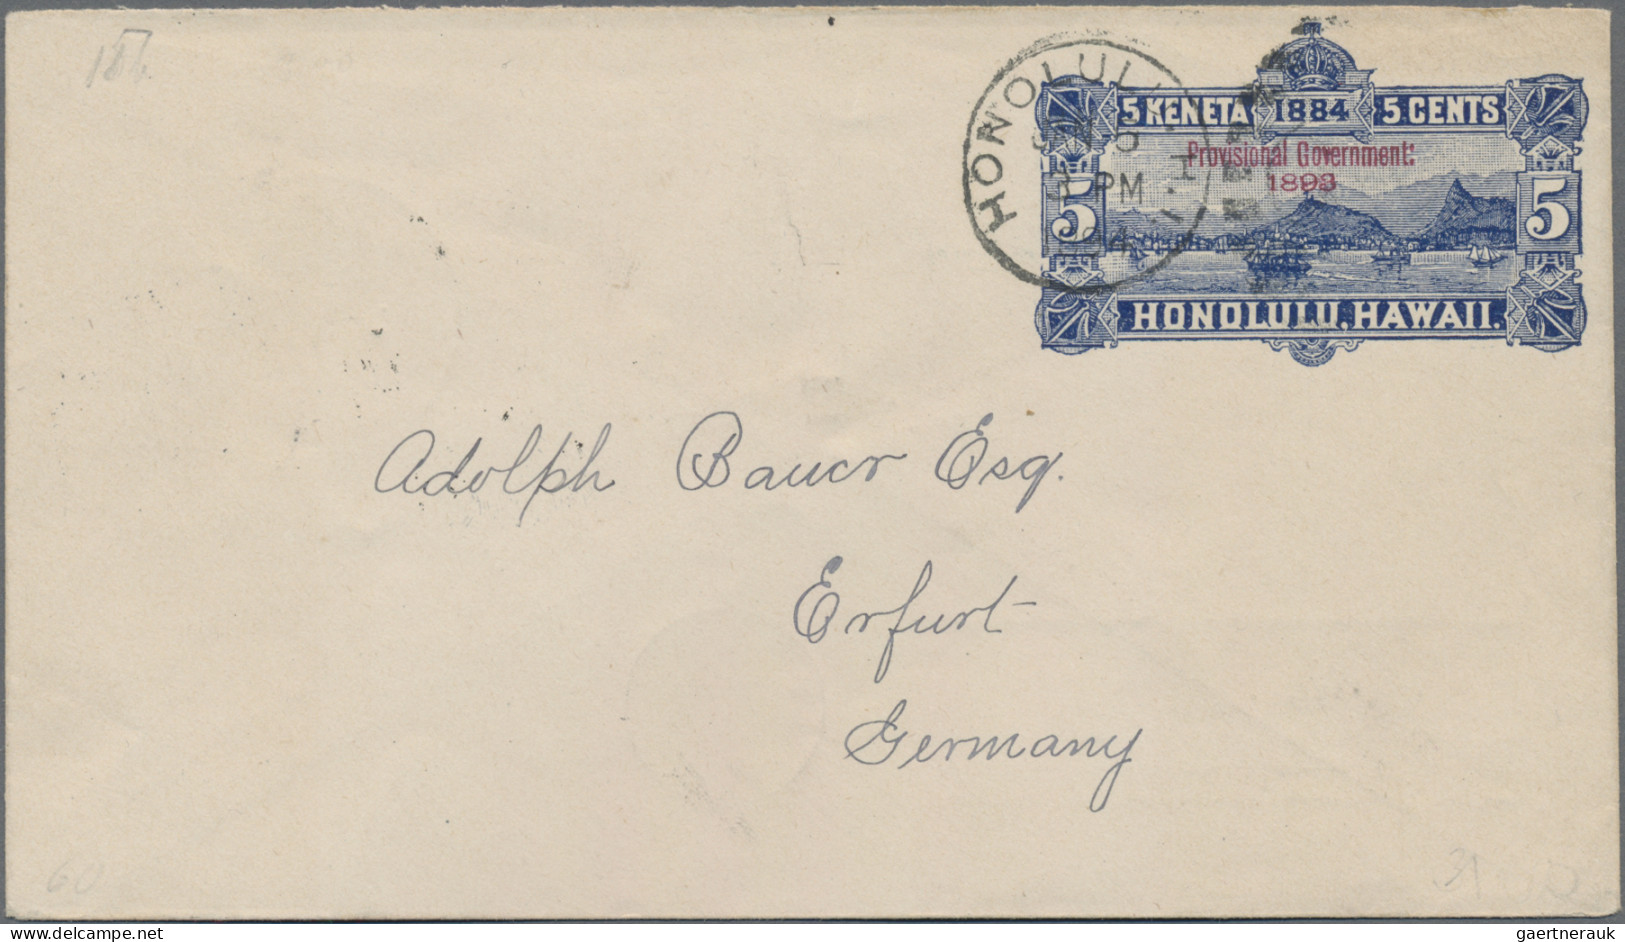 5 KENETA 1884 5 CENTS
Provisional Government:
1893
5 5
HONOLULU, HAWAII.
HONOLULU H.I.
PM
Adolph Bauer Esq.
Erfurt
Germany
60
delcampe.net
gaertnerauk